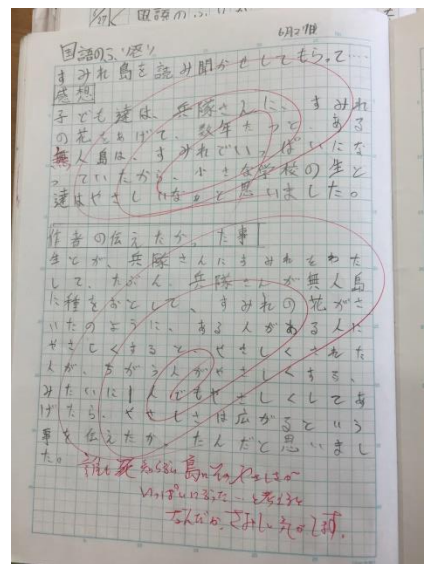 国語のふり返り
6月27日
すみれ島を読み聞かせしてもらって…
感想
子ども達は、兵隊さんに、すみれ
の花をあげて、数年たつと、ある
無人島は、すみれでいっぱいにな
っていたから、小さな学校の生と
達はやさしいな。と思いました。
作者の伝えたかった事
生とが、兵隊さんにすみれをわた
して、たぶん、兵隊さんが無人島
に種をおとして、すみれの花がさ
いたのように、ある人がある人に
やさしくすると、やさしくされた
人が、ちがう人がやさしくする、
みたいに1人でもやさしくしてあ
げたら、やさしさは広がるという
事を伝えたかったんだと思いまし
た。
誰も 島にそのやさしさが
いっぱいになった…と考えると
なんだか、さみしい気がします。